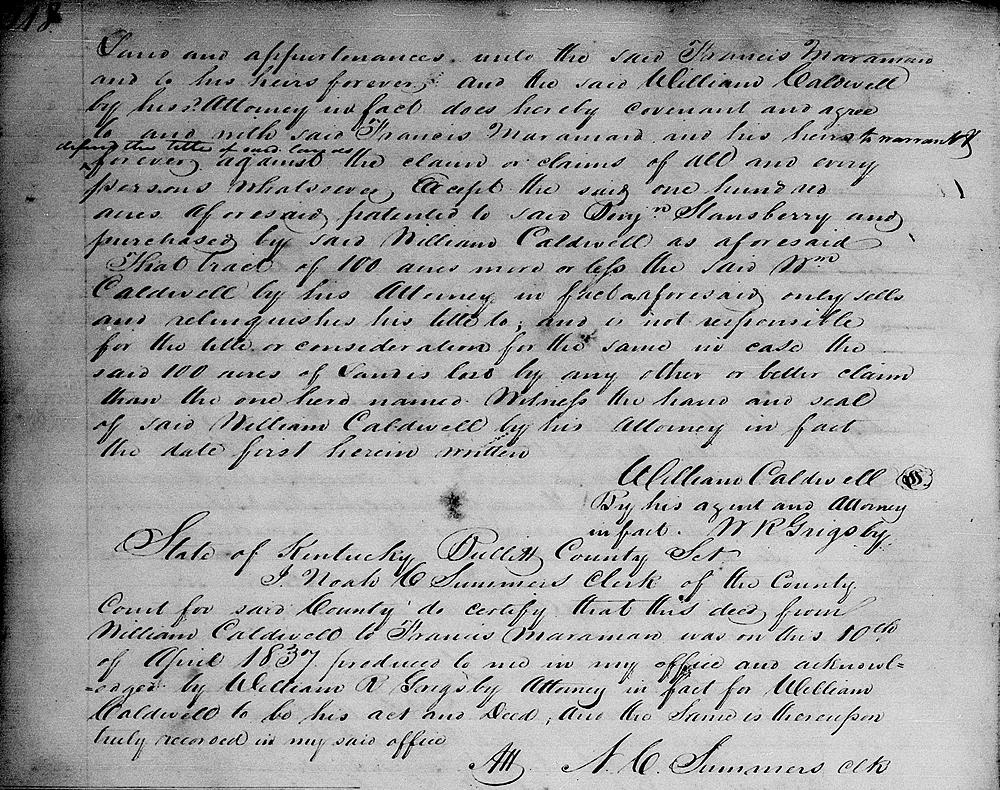 418
Land and appurtenances unto the said Francis Maraman
and to his heirs forever, and the said William Caldwell
by his Attorney in fact does hereby covenant and agree
to and with said Francis Maraman and his heirs to warrant &
defend the title of said land
forever against the claim or claims of all and every
persons whatsoever Except the said one hundred
acres aforesaid patented to said Benjn Stansberry and
purchased by said William Caldwell as aforesaid
That tract of 100 acres more or less the said Wm
Caldwell by his Attorney in fact aforesaid only sells
and relinquishes his title to, and is not responsible
for the title or consideration for the same in case the
said 100 acres of Land is lost by any other or better claim
than the one here named. Witness the hand and seal
of said William Caldwell by his Attorney in fact
the date first herein written
William Caldwell
By his agent and Attorney
in fact. W R Grigsby
State of Kentucky Bullitt County Sct
I. Noah C Summers Clerk of the County
Court for said County do certify that this deed from
William Caldwell to Francis Maraman was on this 10th
of April 1837 produced to me in my office and acknowl=
=edged by William R Grigsby Attorney in fact for William
Caldwell to be his act and Deed, and the Same is thereupon
truly recorded in my said office
Att N. C. Summers clk